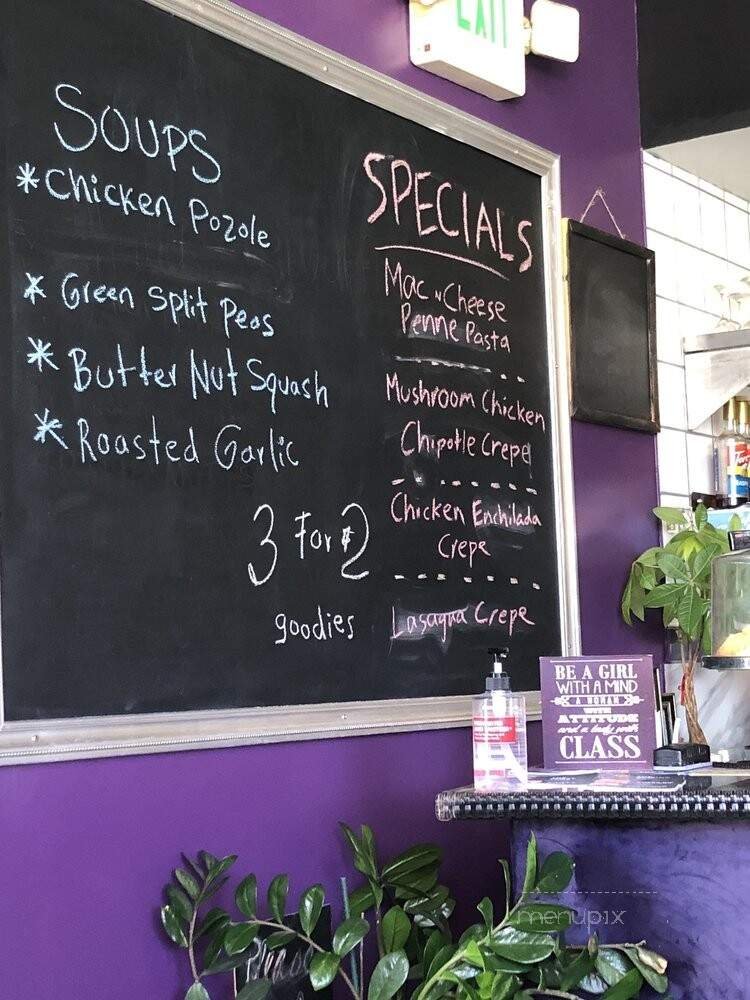 EXIT
SOUPS
*Chicken Pozole
* Green Split Peas
* Butter Nut Squash
* Roasted Garlic
3 For $2
goodies
SPECIALS
Mac n Cheese
Penne Pasta
Mushroom Chicken
Chipotle Crepe
Chicken Enchilada
Crepe
Lasagna Crepe
BE A GIRL
WITH A MIND
A WOMAN
WITH
ATTITUDE
and a lady with
CLASS
menupix